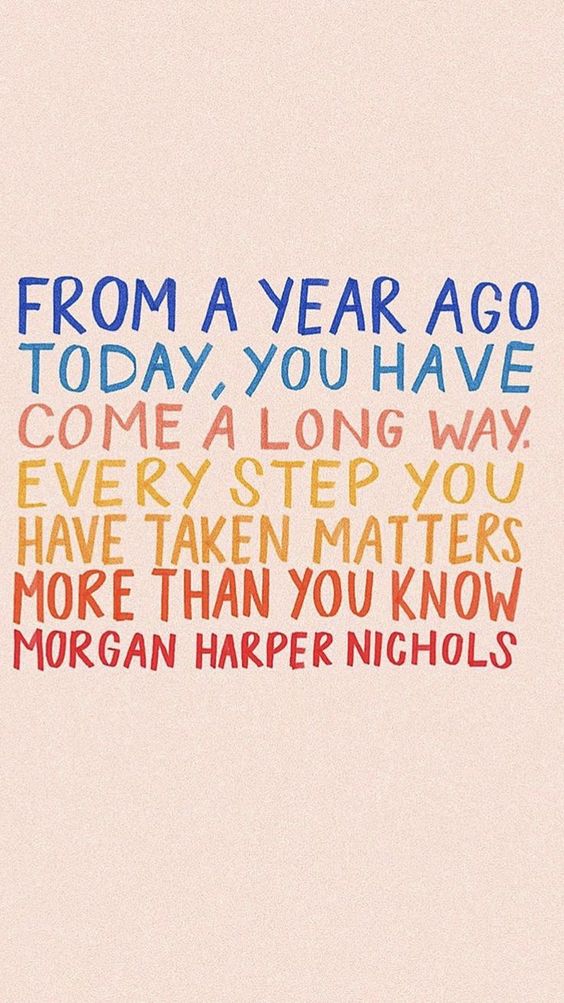 FROM A YEAR AGO
TODAY, YOU HAVE
COME A LONG WAY.
EVERY STEP YOU
HAVE TAKEN MATTERS
MORE THAN YOU KNOW
MORGAN HARPER NICHOLS